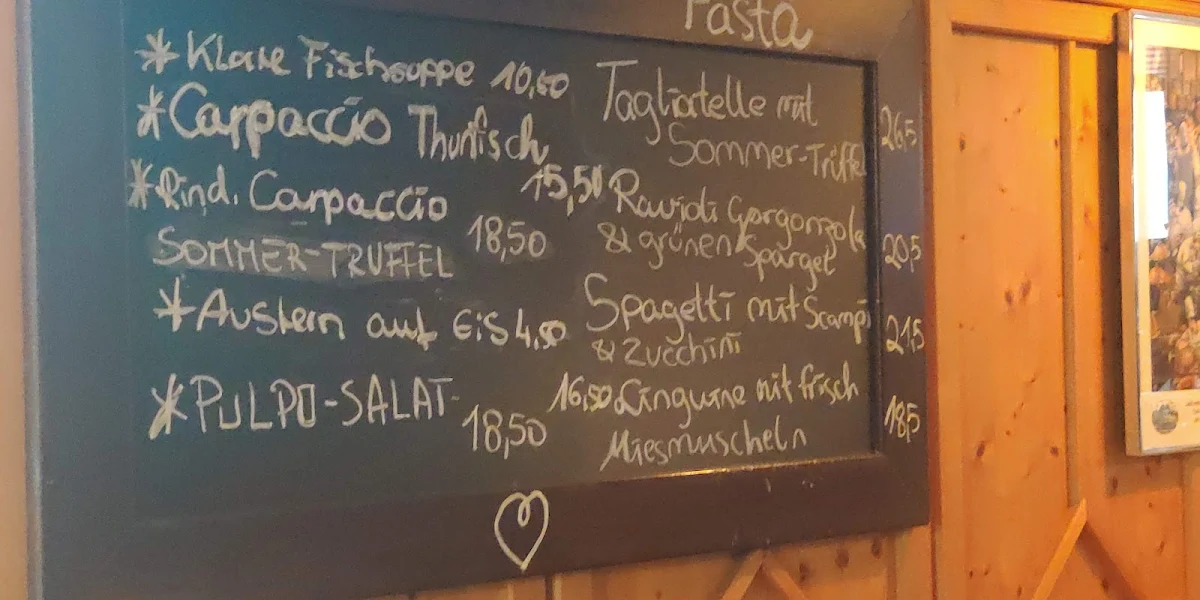 *Klare Fischsuppe 10,50
*Carpaccio Thunfisch
15,50
*Rind. Carpaccio
SOMMER-TRUFFEL 18,50
*Austern auf Eis 4.50
*PULPO-SALAT-
18,50
Pasta
Tagliatelle mit
Sommer-Trüffel 26,5
Ravioli Gorgonzola
& grünen Sparget 20,5
Spagetti mit Scampi
& Zucchini 21,5
16,50 Linguine mit frisch
Miesmuscheln 18,5